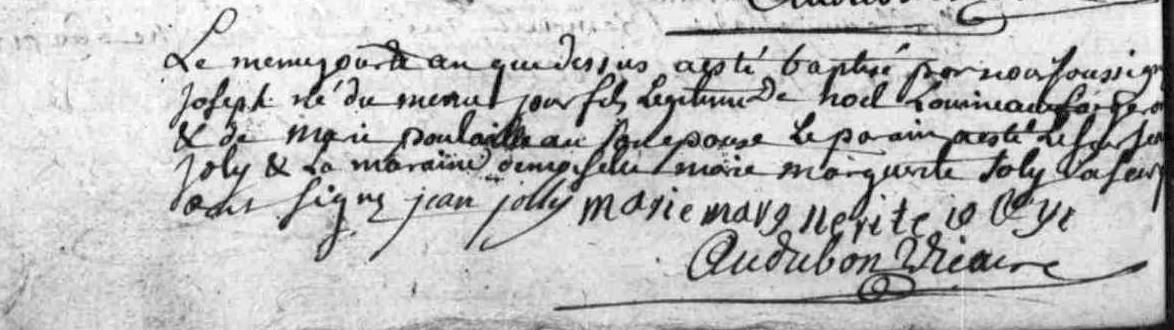 Le meme jour & an que dessus a esté baptisé par nous soussig
Joseph né du meme jour fils legitime de noel Louineau
& de marie poulailleau son epouse Le parain a esté Le sieur Jean
Joly & La maraine demoiselle marie marguerite Joly La
ont signe jean jolly marie marguerite
Audubon Vicaire